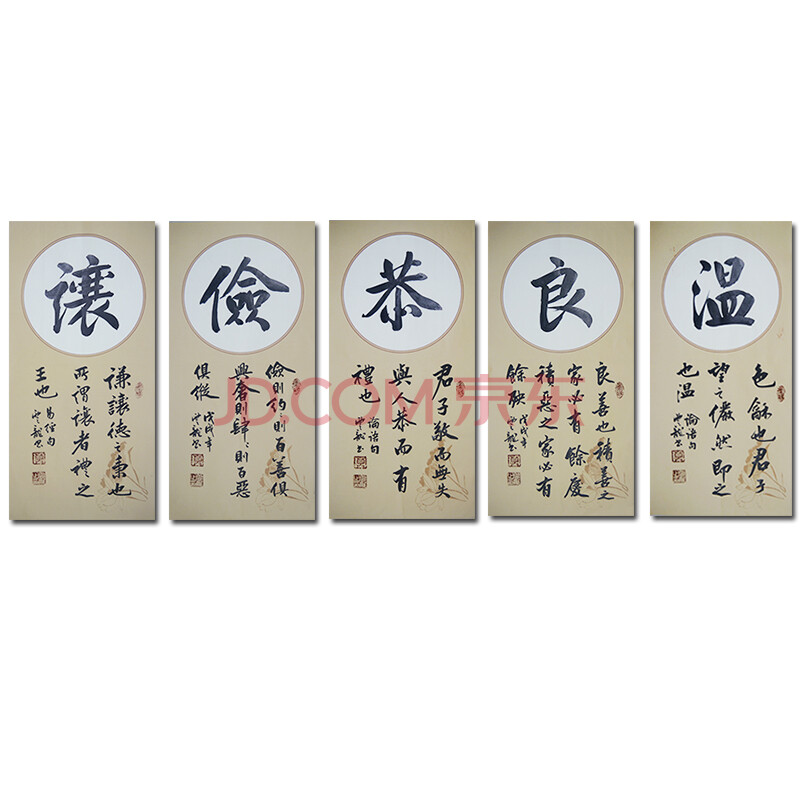 温
色龢也君子
望之儼然即之
也温
論語句
雲龍書
良
良善也積善之
家必有餘慶
積惡之家必有
餘殃
戊戌年
雲龍書
恭
君子敬而無失
與人恭而有
禮也
論語句
雲龍書
儉
儉則約約則百善俱
興奢則肆肆則百惡
俱縱
戊戌年
雲龍書
讓
謙讓德之柬也
所謂讓者禮之
王也
易經句
雲龍書
JD.COM 京东